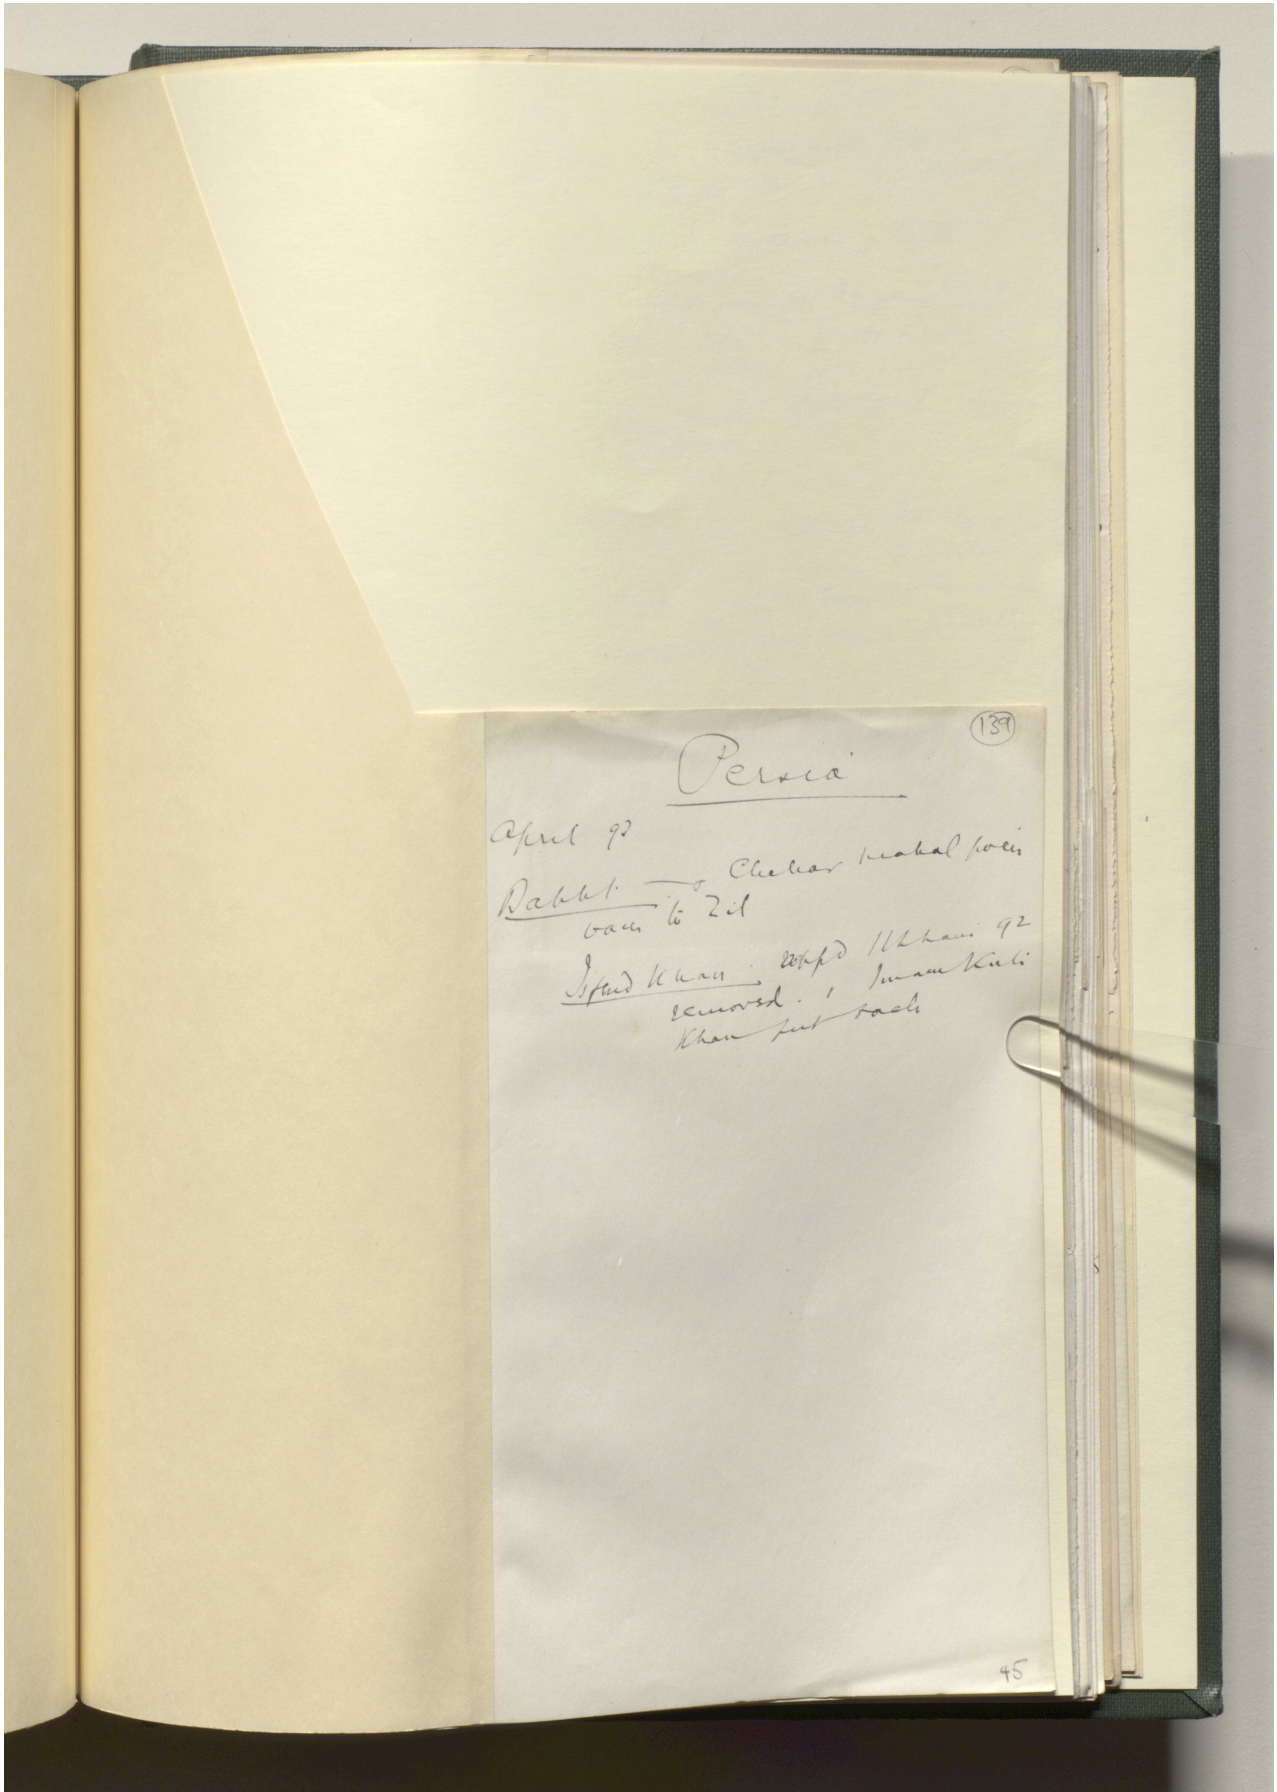 139
Persia
April 93
Bakht. Chehar Mahal given
back to Zil
Isfend Khan. appd Ilkhani 92
removed. Imam Kuli
Khan put back
45